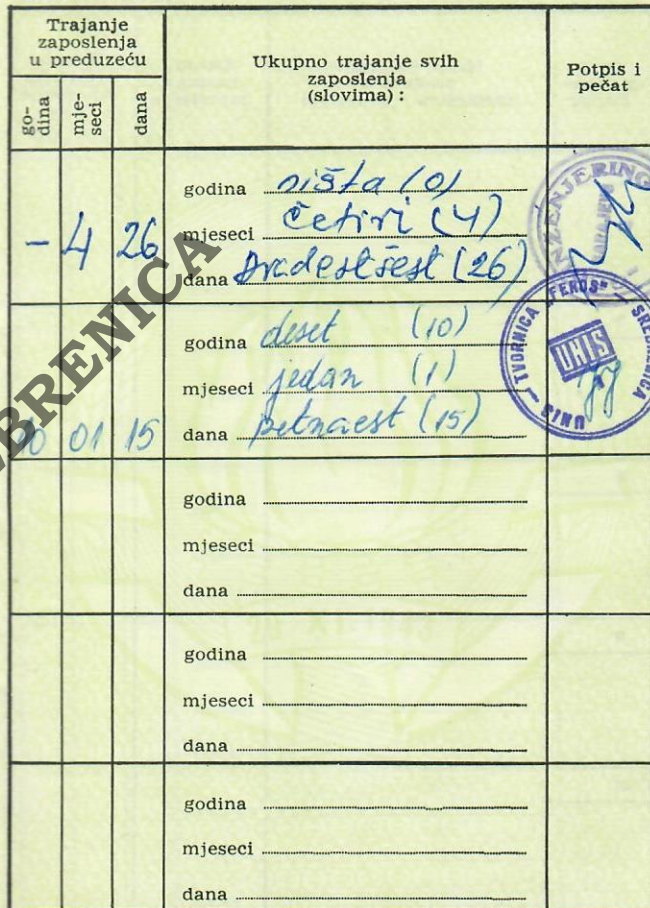 Trajanje
zaposlenja
u preduzeću
go-
dina
mje-
seci
dana
Ukupno trajanje svih
zaposlenja
(slovima):
Potpis i
pečat
- 4 26
godina ništa (0)
mjeseci četiri (4)
dana dvadestšest (26)
INŽENJERING
10 01 15
godina deset (10)
mjeseci jedan (1)
dana petnaest (15)
TVORNICA "FEROS" - SREBRENICA
UNIS
UNIS
godina
mjeseci
dana
godina
mjeseci
dana
godina
mjeseci
dana
BRENICA